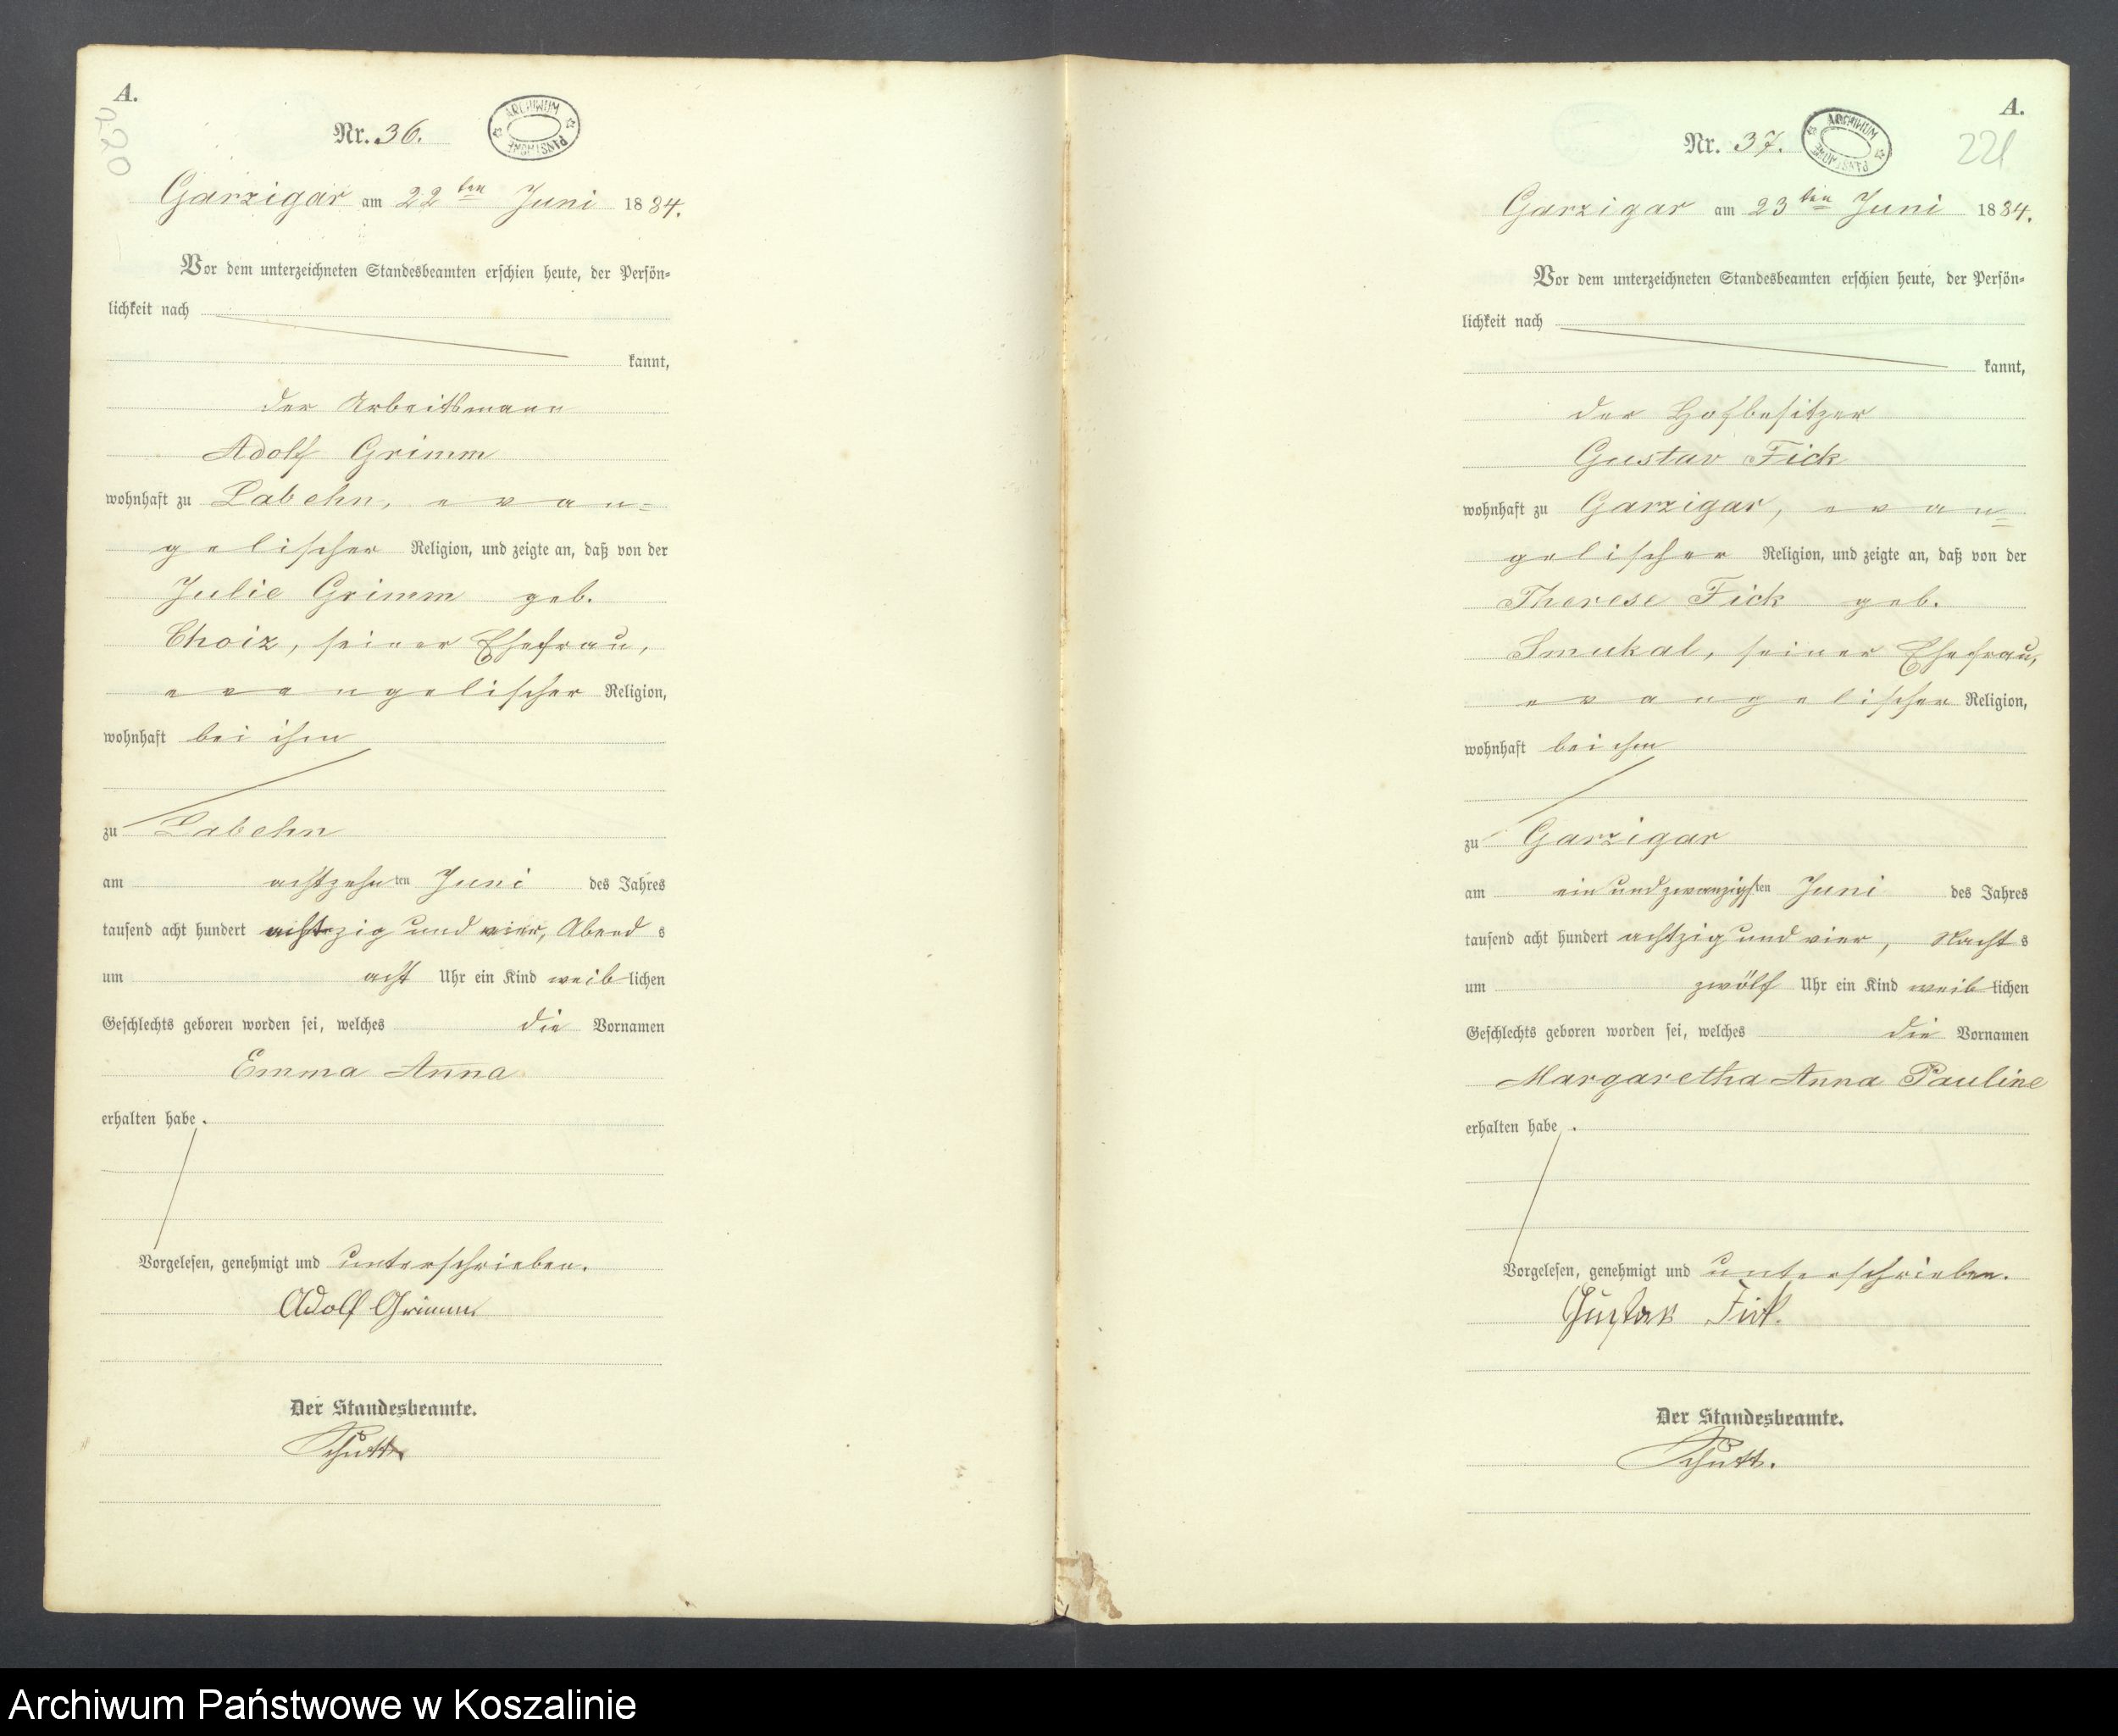 A.
220
Nr. 36.
ARCHIWUM PAŃSTWOWE
Garzigar am 22ten Juni 1884.
Vor dem unterzeichneten Standesbeamten erschien heute, der Persön-
lichkeit nach
kannt,
der Arbeitsmann
Adolf Grimm
wohnhaft zu Labehn, evan-
gelischer Religion, und zeigte an, daß von der
Julie Grimm geb.
Choiz, seiner Ehefrau,
evangelischer Religion,
wohnhaft bei ihm
zu Labehn
am achtzehnten Juni des Jahres
tausend acht hundert achtzig und vier, Abends
um acht Uhr ein Kind weiblichen
Geschlechts geboren worden sei, welches die Vornamen
Emma Anna
erhalten habe.
Vorgelesen, genehmigt und unterschrieben.
Adolf Grimm
Der Standesbeamte.
A.
221
Nr. 37.
ARCHIWUM PAŃSTWOWE
Garzigar am 23ten Juni 1884.
Vor dem unterzeichneten Standesbeamten erschien heute, der Persön-
lichkeit nach
kannt,
der Hofbesitzer
Gustav Fick
wohnhaft zu Garzigar, evan-
gelischer Religion, und zeigte an, daß von der
Therese Fick geb.
Smukal, seiner Ehefrau,
evangelischer Religion,
wohnhaft bei ihm
zu Garzigar
am ein und zwanzigsten Juni des Jahres
tausend acht hundert achtzig und vier, Nachts
um zwölf Uhr ein Kind weiblichen
Geschlechts geboren worden sei, welches die Vornamen
Margaretha Anna Pauline
erhalten habe.
Vorgelesen, genehmigt und unterschrieben.
Gustav Fick.
Der Standesbeamte.
Archiwum Państwowe w Koszalinie